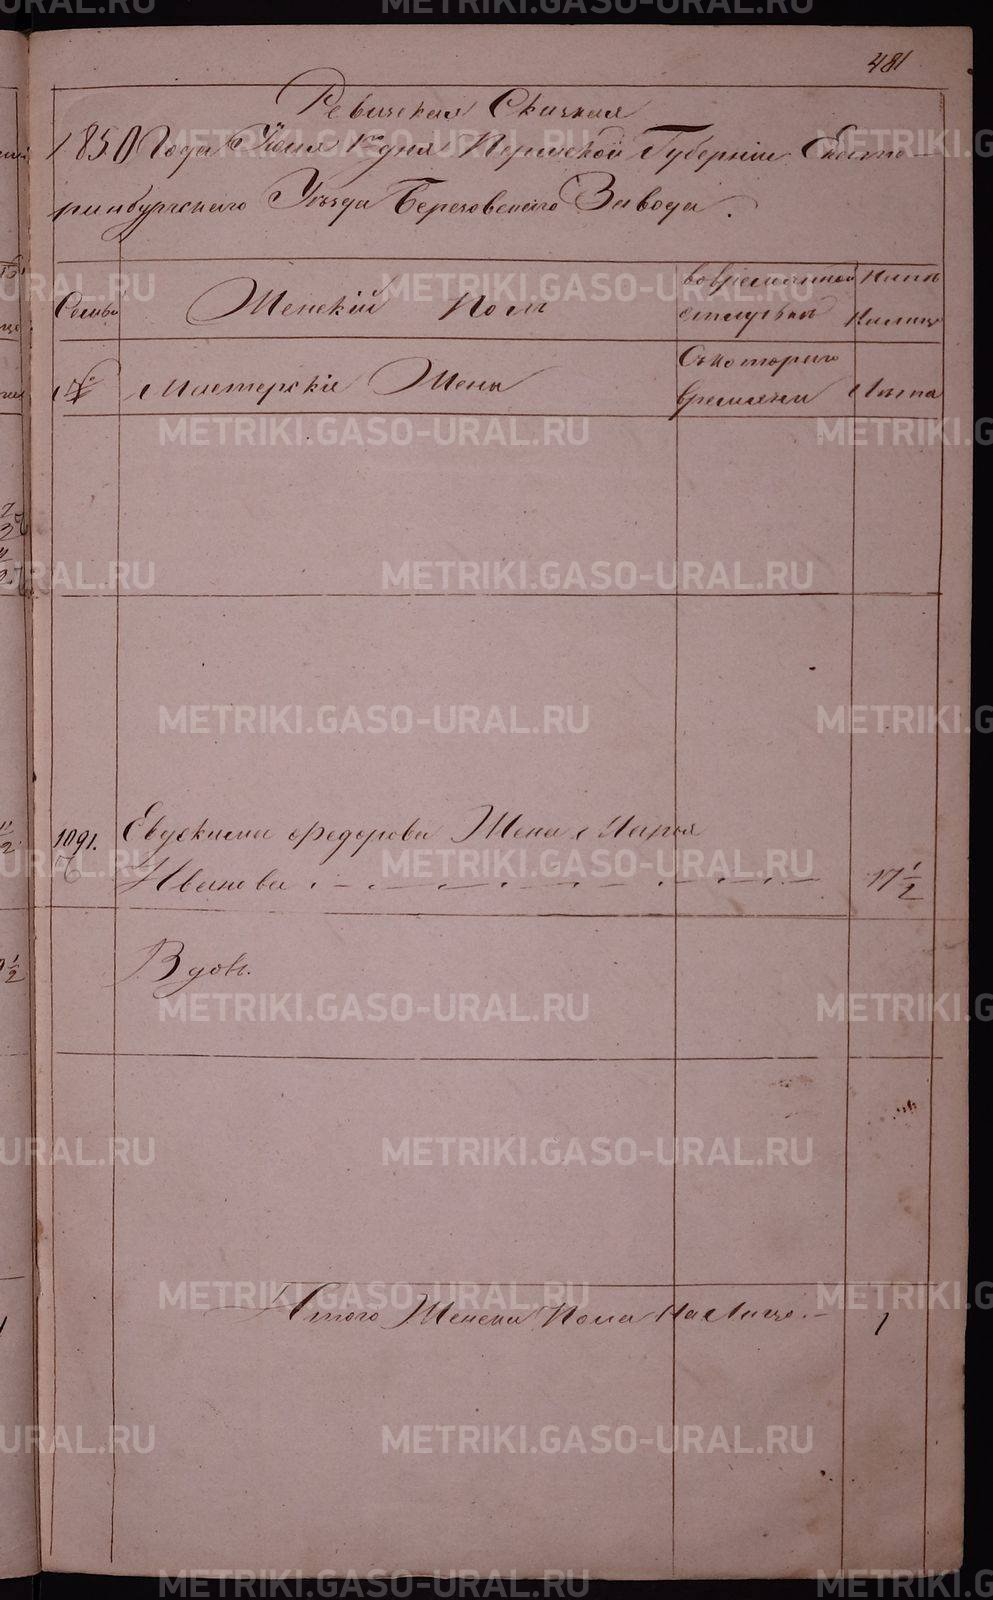 481
Ревизская Сказкая
1850 Года Июня 1го дня Пермской Губернiи Екате-
ринбургскаго Уезда Березовскаго Завода.
Семьи
Женскiй Полъ
во временной отлучкѣ
Нынѣ на лицо
№
Мастерскiе Жены
Съ котораго времяни
Лѣта
1091.
Евдокима Федорова Жена Марья
Иванова
17 1/2
Вдов.
Итого Женска Пола На Лицо. –
1
METRIKI.GASO-URAL.RU